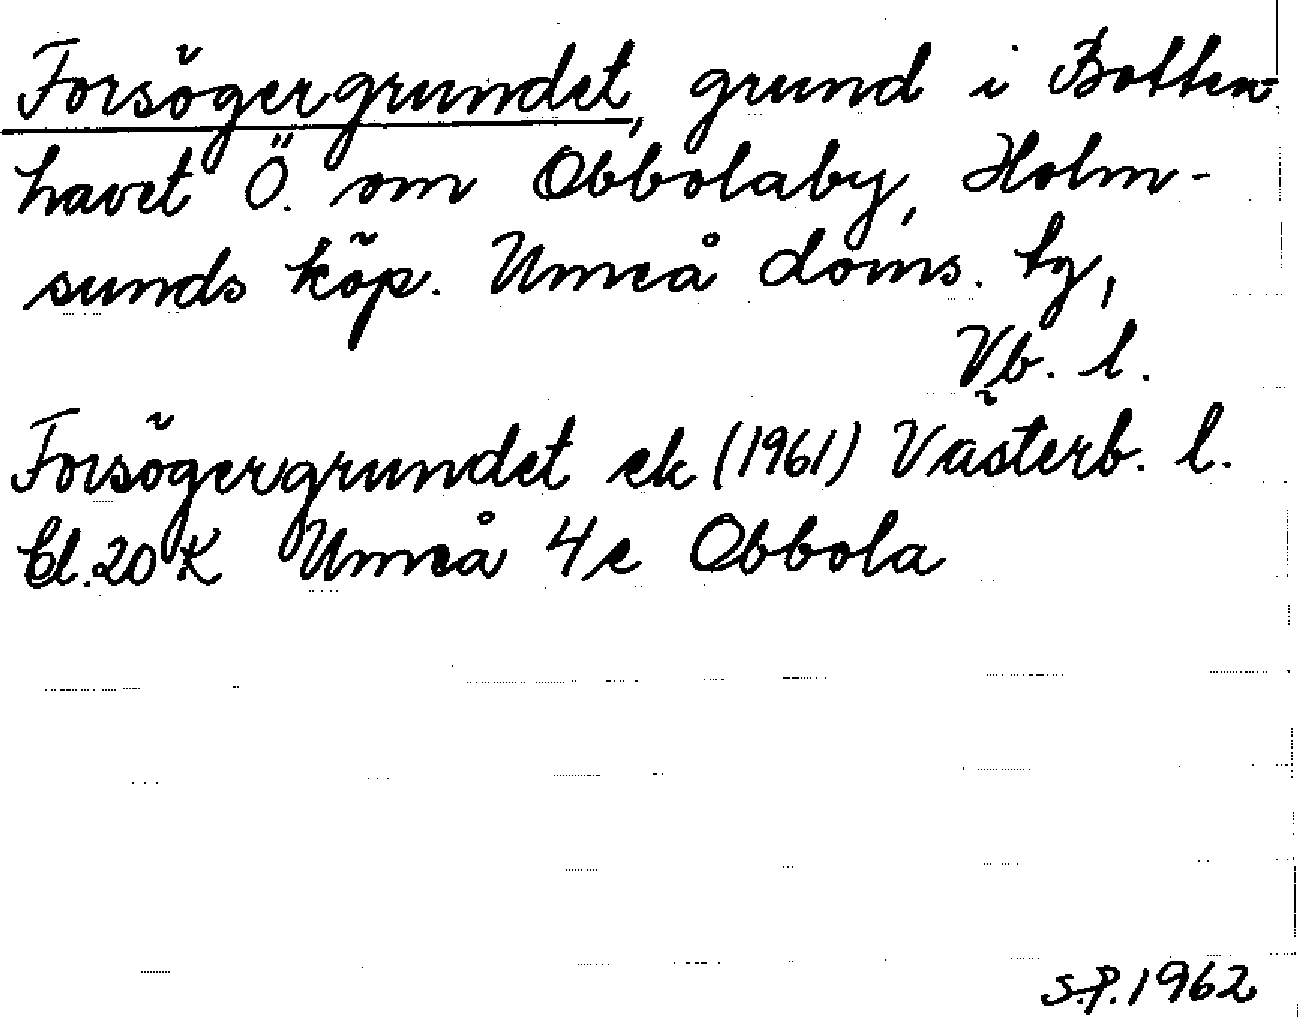 Forsögergrundet, grund i Botten-
havet Ö. om Obbolaby, Holm-
sunds köp. Umeå doms. tg,
Vb. l.
Forsögergrundet ek (1961) Västerb. l.
bl. 20 K Umeå 4 e Obbola
S.P. 1962